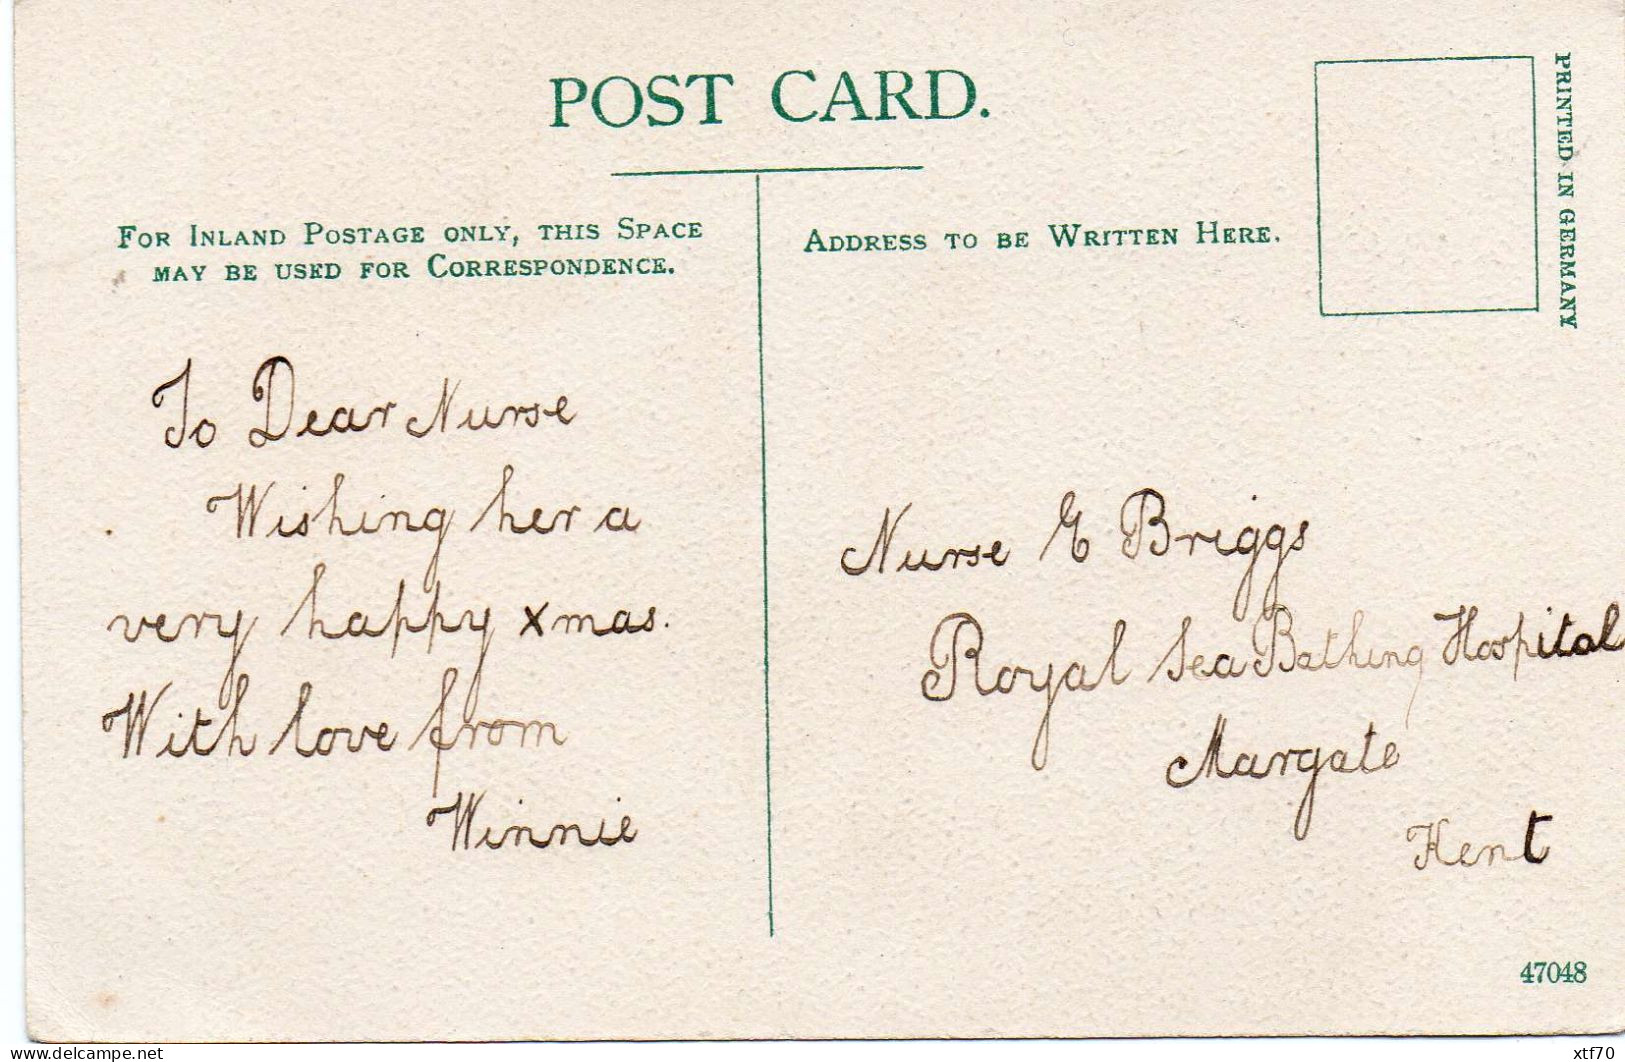 POST CARD.
FOR INLAND POSTAGE ONLY, THIS SPACE
MAY BE USED FOR CORRESPONDENCE.
ADDRESS TO BE WRITTEN HERE.
PRINTED IN GERMANY
To Dear Nurse
Wishing her a
very happy xmas.
With love from
Winnie
Nurse E Briggs
Royal Sea Bathing Hospital
Margate
Kent
47048
delcampe.net
xtf70